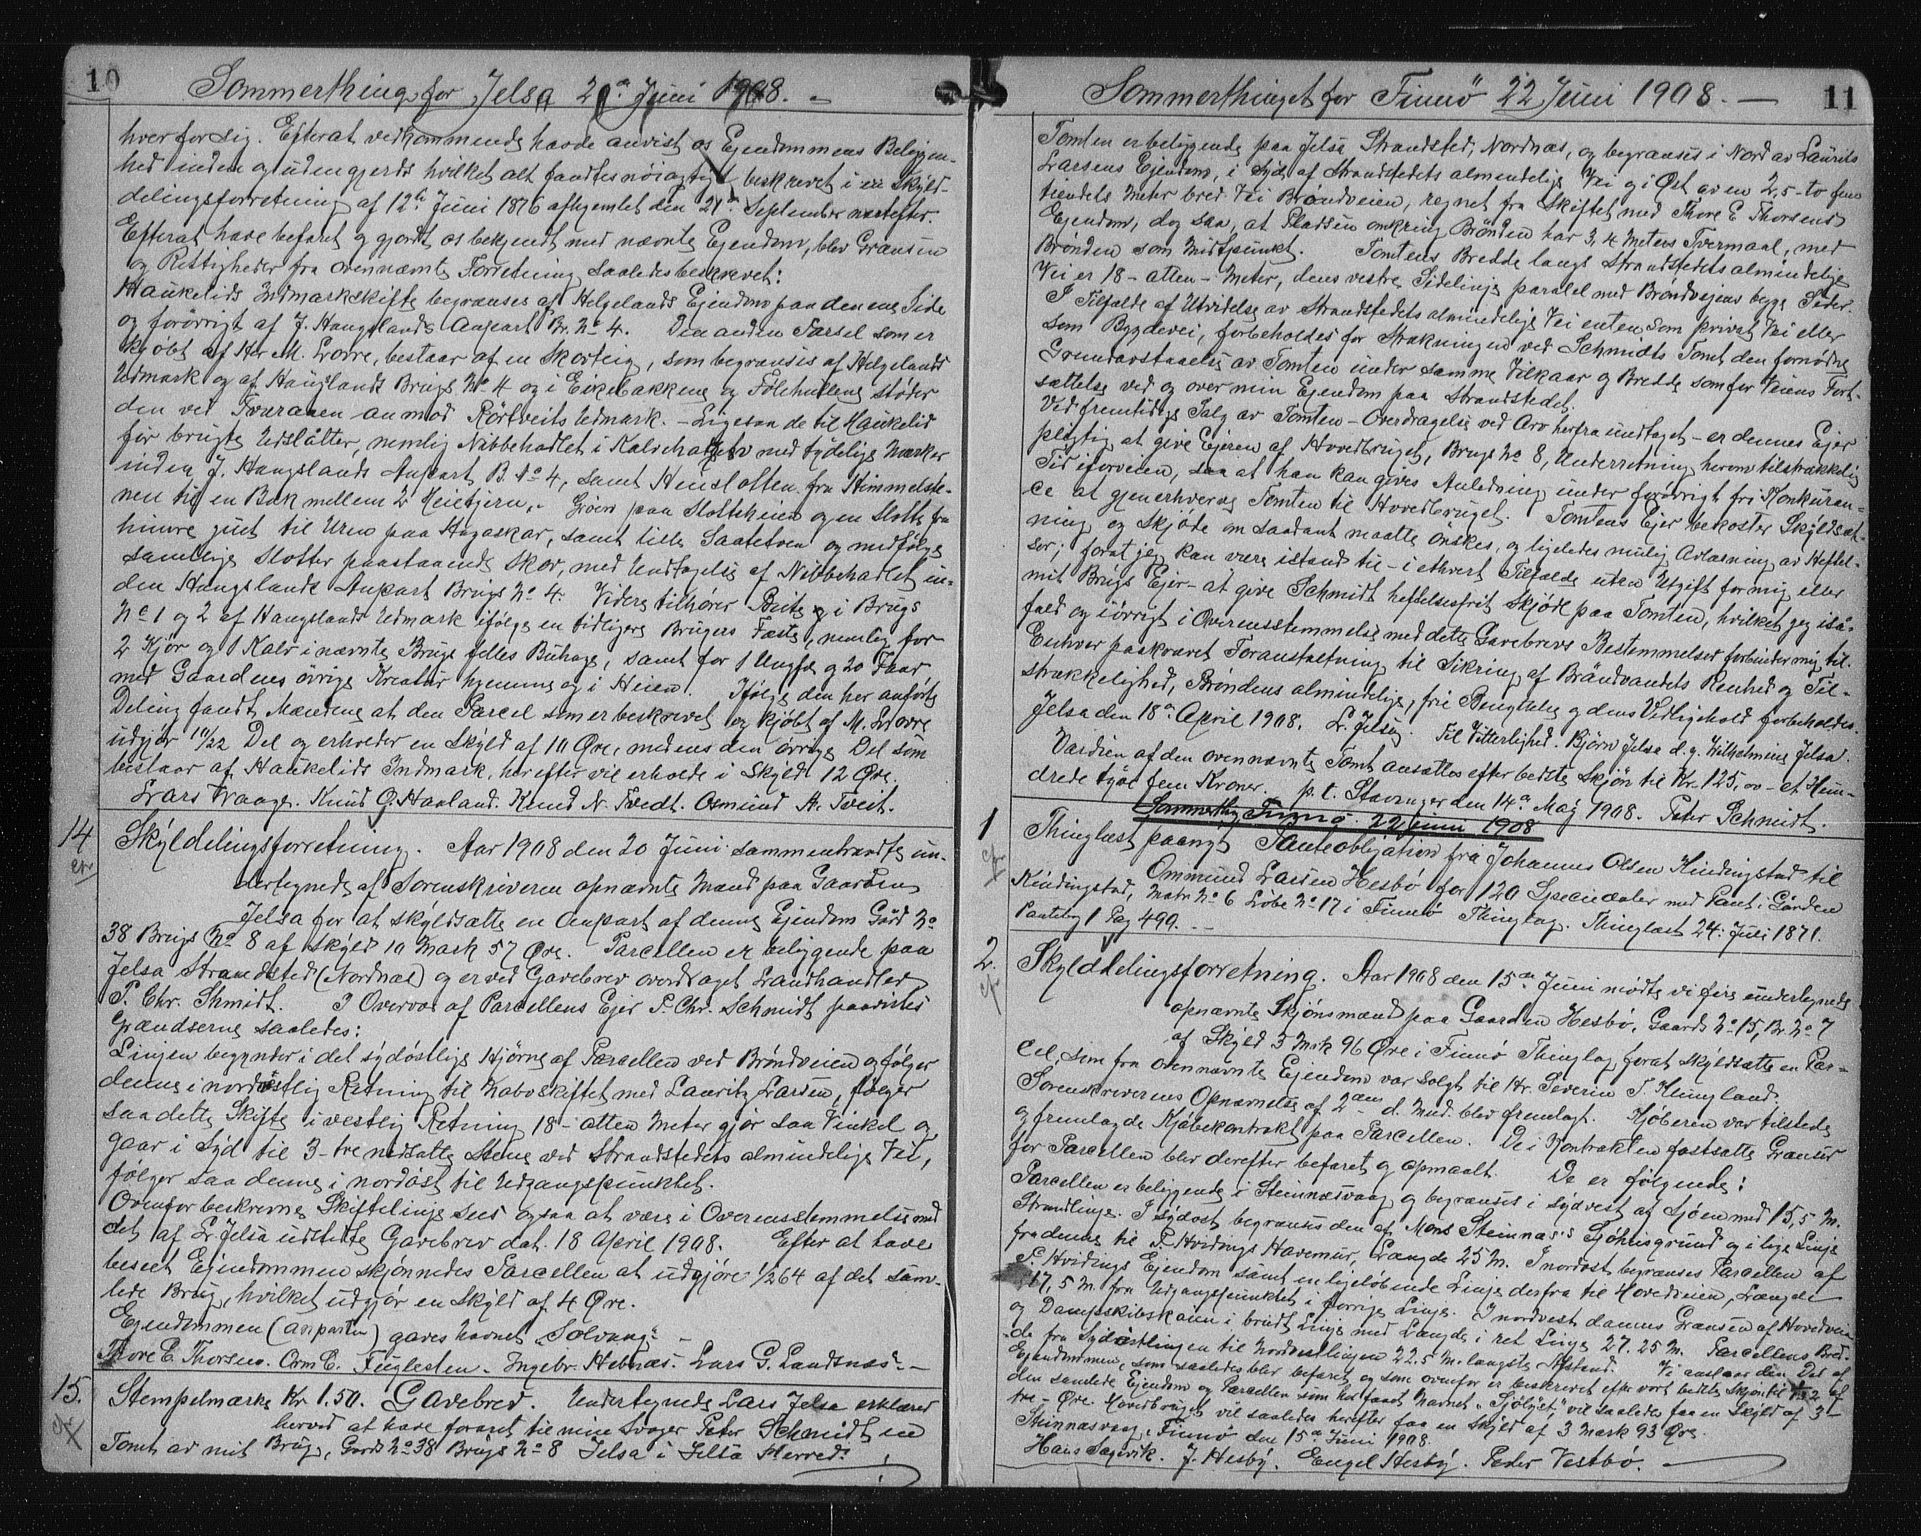 10
Sommerthing for Jelsa 20de Juni 1908. –
hver for sig. Efterat vedkommende havde anvist os Ejendommens Beliggen-
hed inden og uden gjerds hvilket alt fandtes nöiagtigt beskrevet i en Skyld-
delingsforretning af 12te Juni 1876 afhjemlet den 21de September næstefter.
Efterat have befaret og gjordt os bekjendt med nævnte Ejendom, blev Grænsen
og Rettigheder fra ovennævnte Forretning saaledes beskrevet:
Haukelids Indmarkskifte begrænses af Helgelands Ejendom paa den ene Side
og forövrigt af J. Hauglands Anpart Br. No 4. Den anden Parsel som er
kjöbt af Hr. M. Lovre, bestaar af en Skovteig, som begrænses af Helgelands
Udmark og af Hauglands Brugs No 4 og i Eikebakkene og Folehullene stöder
den ved Tveraaen an mod Rörtveits Udmark. – Ligesaa de til Haukelid
för brugte Udslåtter, nemlig Nibbehadlet i Kalvehagen med tydelige Mærker
inden J. Hauglands Anpart B. No 4, samt Henslotten fra Himmelste-
nen til en Bæk mellem 2 Heietjern, Gröen paa Slotteheien og en Slotte fra
hinne Juvet til Uren paa Hagaskar, samt lille Saatetoen og medfölge
samtlige Slotter paastaaende Skov, med Undtagelse af Nibbehadlet in-
den Hauglands Anpart Brugs No 4. Videre tilhörer Beite og i Brugs
No 1 og 2 af Hauglands Udmark ifölge en tidligere Brugers Fæste, nemlig for
2 Kjör og 1 Kalv i nævnte Brugs fælles Buhage, samt for 1 Ungfæ og 20 Faar
med Gaardens övrige Kreatur hjemme og i Heien. Ifölge den her anförte
Deling fandt Mændene at den Parcel som er beskrevet og kjöbt af M. Lovre
udgjör 10/22 Del og erholder en Skyld af 10 Öre, medens den övrige Del som
bestaar af Haukelids Indmark, herefter vil erholde i Skyld 12 Öre.
Lars Waage. Knud G. Haaland. Knud N. Tvedt. Osmund A. Tveit.
14
Skylddelingsforretning. Aar 1908 den 20 Juni sammentraadte un-
dertegnede af Sorenskriveren opnævnte Mænd paa Gaarden
Jelsa for at skyldsætte en Anpart af denne Ejendom Gård No
38 Brugs No 8 af Skyld 10 Mark 57 Öre. Parcellen er beliggende paa
Jelsa Strandsted (Nordnæs) og er ved Gavebrev overdraget Landhandler
P. Chr. Shmidt. I Overvær af Parcellens Ejer P. Chr. Schmidt paavistes
Grændserne saaledes:
Linjen begynder i det sydöstlige Hjörne af Parcellen ved Bröndveien og fölger
denne i nordöstlig Retning til Naboskiftet med Lauritz Larsen, fölger
saa dette Skifte i vestlig Retning 18 – atten Meter gjör saa Vinkel og
gaar i Syd til 3 – tre nedsatte Stene ved Strandstedets almindelige Vei,
fölger saa denne i nordöst til Udgangspunktet.
Ovenfor beskrevne Skiftelinje sees ogsaa at være i Overensstemmelse med
det af L. Jelsa udstedte Gavebrev dat. 18 April 1908. Efter at have
beseet Ejendommen skjönnedes Parcellen at udgjöre 1/264 af det sam-
lede Brug, hvilket udgjör en Skyld af 4 Öre.
Ejendommen (anparten) gaves Navnet „Solvang“ –
Thore E. Thorsen. Orm E. Fuglesten. Ingebr. Hebnæs. Lars G. Landsnæs. –
15.
Stempelmærke Kr. 1.50. Gavebrev. Undertegnede Lars Jelsa erklærer
herved at have foræret til min Svoger Peter Schmidt en
Tomt av mit Brug, Gards No 38 Brugs No 8 Jelsa i Jelsa Herred:
11
Sommerthinget for Finnö 22 Juni 1908. –
Tomten er beliggende paa Jelsa Strandsted, Nordnæs, og begrænses i Nord av Laurits
Larsens Ejendom, i Syd af Strandstedets almindelige Vei og i Öst av en 2,5 – to fem
tiendels Meter bred Vei Bröndveien, regnet fra Skiftet med Thore E. Thorsens
Ejendom, dog saa, at Pladsen omkring Brönden har 3,4 Meters Tvermaal, med
Brönden som Midtpunkt. Tomtens Bredde langs Strandstedets almindelige
Vei er 18 – atten – Meter, dens vestre Sidelinje paralel med Bröndveiens begge Sider.
I Tilfælde af Utvidelse av Strandstedets almindelige Vei enten som privat Vei eller
som Bygdevei, forbeholdes for Strækningen ved Schmidts Tomt den fornödne
Grundavstaaelse av Tomten under samme Vilkaar og Bredde som for Veiens Fort-
sættelse ved og over min Ejendom paa Strandstedet.
Ved fremtidig Salg av Tomten – Overdragelse ved Arv herfra undtaget – er dennes Ejer
pligtig at give Ejeren af Hovedbruget, Brugs No 8, Underretning herom tilstrækkelig
Tid iforveien, saa at han kan gives Anledning under forövrigt fri Konkuran-
ce at gjenerhverve Tomten til Hovedbruget. Tomtens Ejer bekoster Skyldsæt-
ning og Skjöde om saadant maatte önskes, og ligeledes mulig Avlösning av Heftel-
ser; forat jeg kan være istand til – i ethvert Tilfælde uten Utgift for mig eller
mit Brugs Ejer – at give Schmidt heftelsesfrit Skjöde paa Tomten, hvilket jeg iså-
fald og iövrigt i Overensstemmelse med dette Gavebrevs Bestemmelser forbinder mig til.
Enhver paakrævet Foranstaltning til Sikring af Bröndvandets Renhed og Til-
strækkelighed, Bröndens almindelige, frie Benyttelse og dens Vedligehold forbeholdes.
Jelsa den 18de April 1908. L. Jelsa. Til Vitterlighed. Björn Jelsa d.y. Wilhelmine Jelsa.
Værdien af den ovennævnte Tomt ansættes efter bedste Skjön til Kr. 125,00 – et Hun-
drede tyve fem Kroner. p. t. Stavanger den 14de Maj 1908. Peter Schmidt.
Sommerthing Finnö 22 juni 1908
1
Thinglæst paany Panteobligation fra Johannes Olsen Kindingstad til
Ommund Larsen Hesbö for 120 Speciedaler med Pant i Gården
Kindingstad, Matr. No 6 Löbe No 17 i Finnö Thinglag. Thinglæst 24. Juli 1871.
Pantreg 1 Pag 499. –
2.
Skylddelingsforretning. Aar 1908 den 15de Juni mödte vi fire undertegnede
opnævnte Skjönsmænd paa Gaarden Hesbö, Gaards No 15, Br. No 7
af Skyld 3 Mrk 96 Öre i Finnö Thinglag forat skyldsætte en Par-
cel, som fra ovennævnte Ejendom var solgt til Hr. Severin T. Heingland.
Sorenskriverens Opnævnelse af 2den d. Mnd. blev fremlagt. Kjöberen var tilstede
og fremlagde Kjöbekontrakt paa Parcellen. De i Kontrakten fastsatte Grænser
for Parcellen blev derefter befaret og opmaalt. De er fölgende:
Parcellen er beliggende i Steinnæsvaag og begrænses i sydvest af Sjöen med 15,5 M.
Strandlinje. I sydost begrænses den af Mons Steinnæs's Sjöhusgrund og i lige Linje
fra denne til P. Hvidings Havemur, Længde 25 M. I nordost begrænses Parcellen af
P. Hvidings Ejendom samt en ligelöbende Linje derfra til Hovedveien, Længde
17,5 M. fra Udgangspunktet i forrige Linje. I nordvest dannes Grænsen af Hovedveien
og Dampskibskaien i brudt Linje med Længde i ret Linje 27.25 M. Parcellens Bred-
de fra Sydostlinjen til Nordvestlinjen 22.5 M. længste Afstand. Vi anslaar den Del af
Ejendommen, som saaledes blev befaret og som ovenfor er beskrevet efter vort bedste Skjön til 1/132 af
den samlede Ejendom og Parcellen som har faaet Navnet „Sjölyst“, vil saaledes faa en Skyld af 3 –
tre – Öre. Hovedbruget vil saaledes herefter faa en Skyld af 3 Mark 93 Öre.
Stennæsvaag, Finnö den 15de Juni 1908.
Hans Sægvik. J. Hesby. Engel Hesby. Peder Vestbö. –